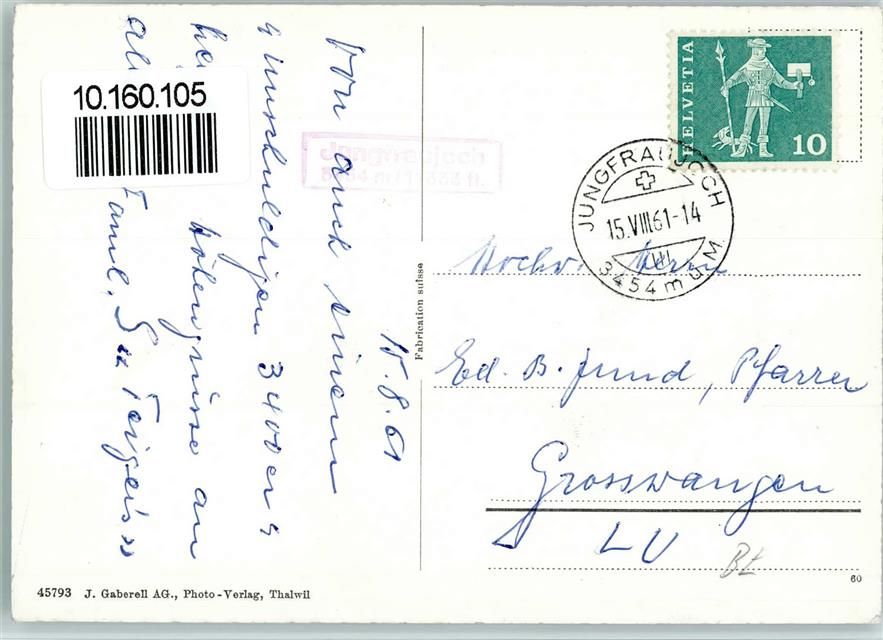 10.160.105
15.8.61
Von auch einem
"unschuldigen 3400er"
Höhengrüsse an
Faml.
Jungfraujoch
3454 m / 11333 ft.
Fabrication suisse
HELVETIA
10
JUNGFRAUJOCH
15.VIII.61-14
3454 m ü.M.
Hochw. Herrn
Ed. B. Jund, Pfarrer
Grosswangen
LU
45793 J. Gaberell AG., Photo-Verlag, Thalwil
60